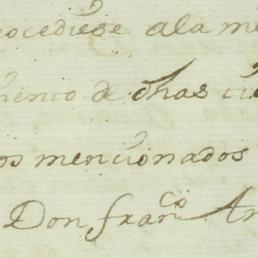 ocediese ala me
miento de dhas cu
os mencionados
Don fran.co An